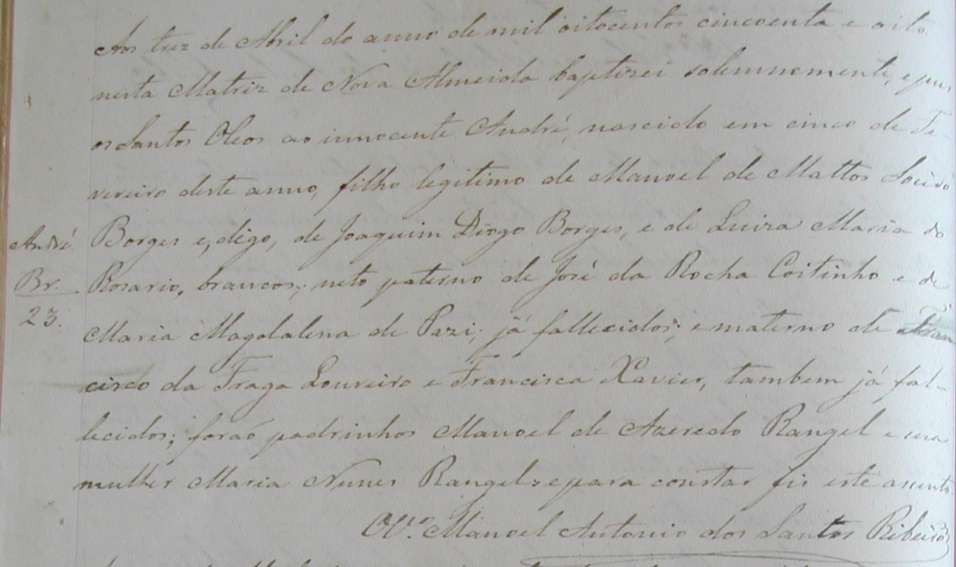 Aos trez de Abril do anno de mil oitocentos cincoenta e oito
nesta Matriz de Nova Almeida baptizei solemnemente, e puz
os Santos Oleos ao innocente André, nascido em cinco de Fe-
vereiro deste anno, filho legitimo de Manoel de Mattos Loureiro
André Borges e, digo, de Joaquim Diogo Borges, e de Luiza Maria do
Br. Rosario, brancos; neto paterno de José da Rocha Coitinho e de
23. Maria Magdalena de Pazi; já fallecidos; e materno de Fran
cisco da Fraga Loureiro e Francisca Xavier, tambem já fal-
lecidos; foraõ padrinhos Manoel de Azeredo Rangel e sua
mulher Maria Nunes Rangel: e para constar fiz este assento
O Vº. Manoel Antonio dos Santos Ribeiro